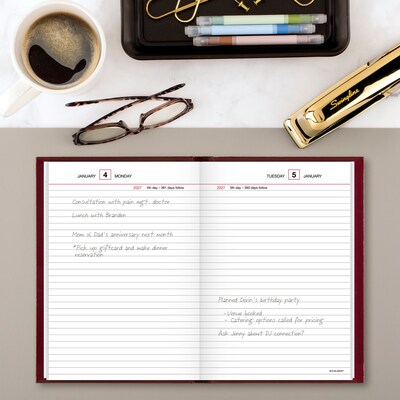 Swingline
JANUARY 4 MONDAY
2027 4th day – 361 days follow
Consultation with pain mgt. doctor
Lunch with Brandon
Mom & Dad's anniversary next month
*Pick up giftcard and make dinner
reservation
TUESDAY 5 JANUARY
2027 5th day – 360 days follow
Planned Deric's birthday party
- Venue booked
- Catering options called for pricing
Ask Jenny about DJ connection?